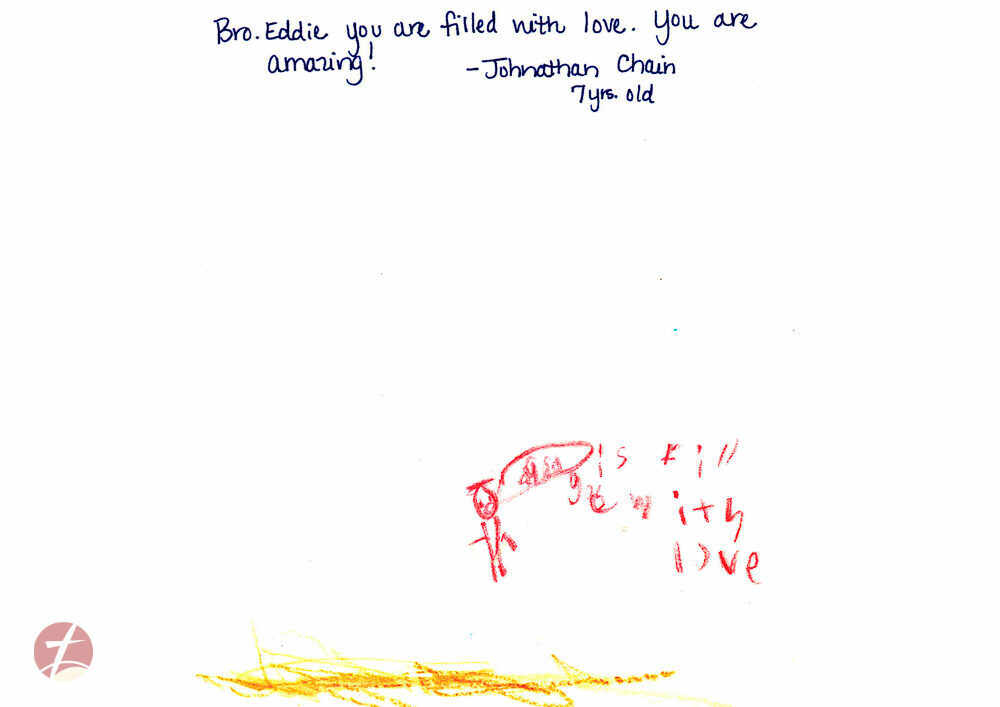 Bro. Eddie you are filled with love. You are
amazing!
-Johnathan Chain
7yrs. old
is Fill
with
love